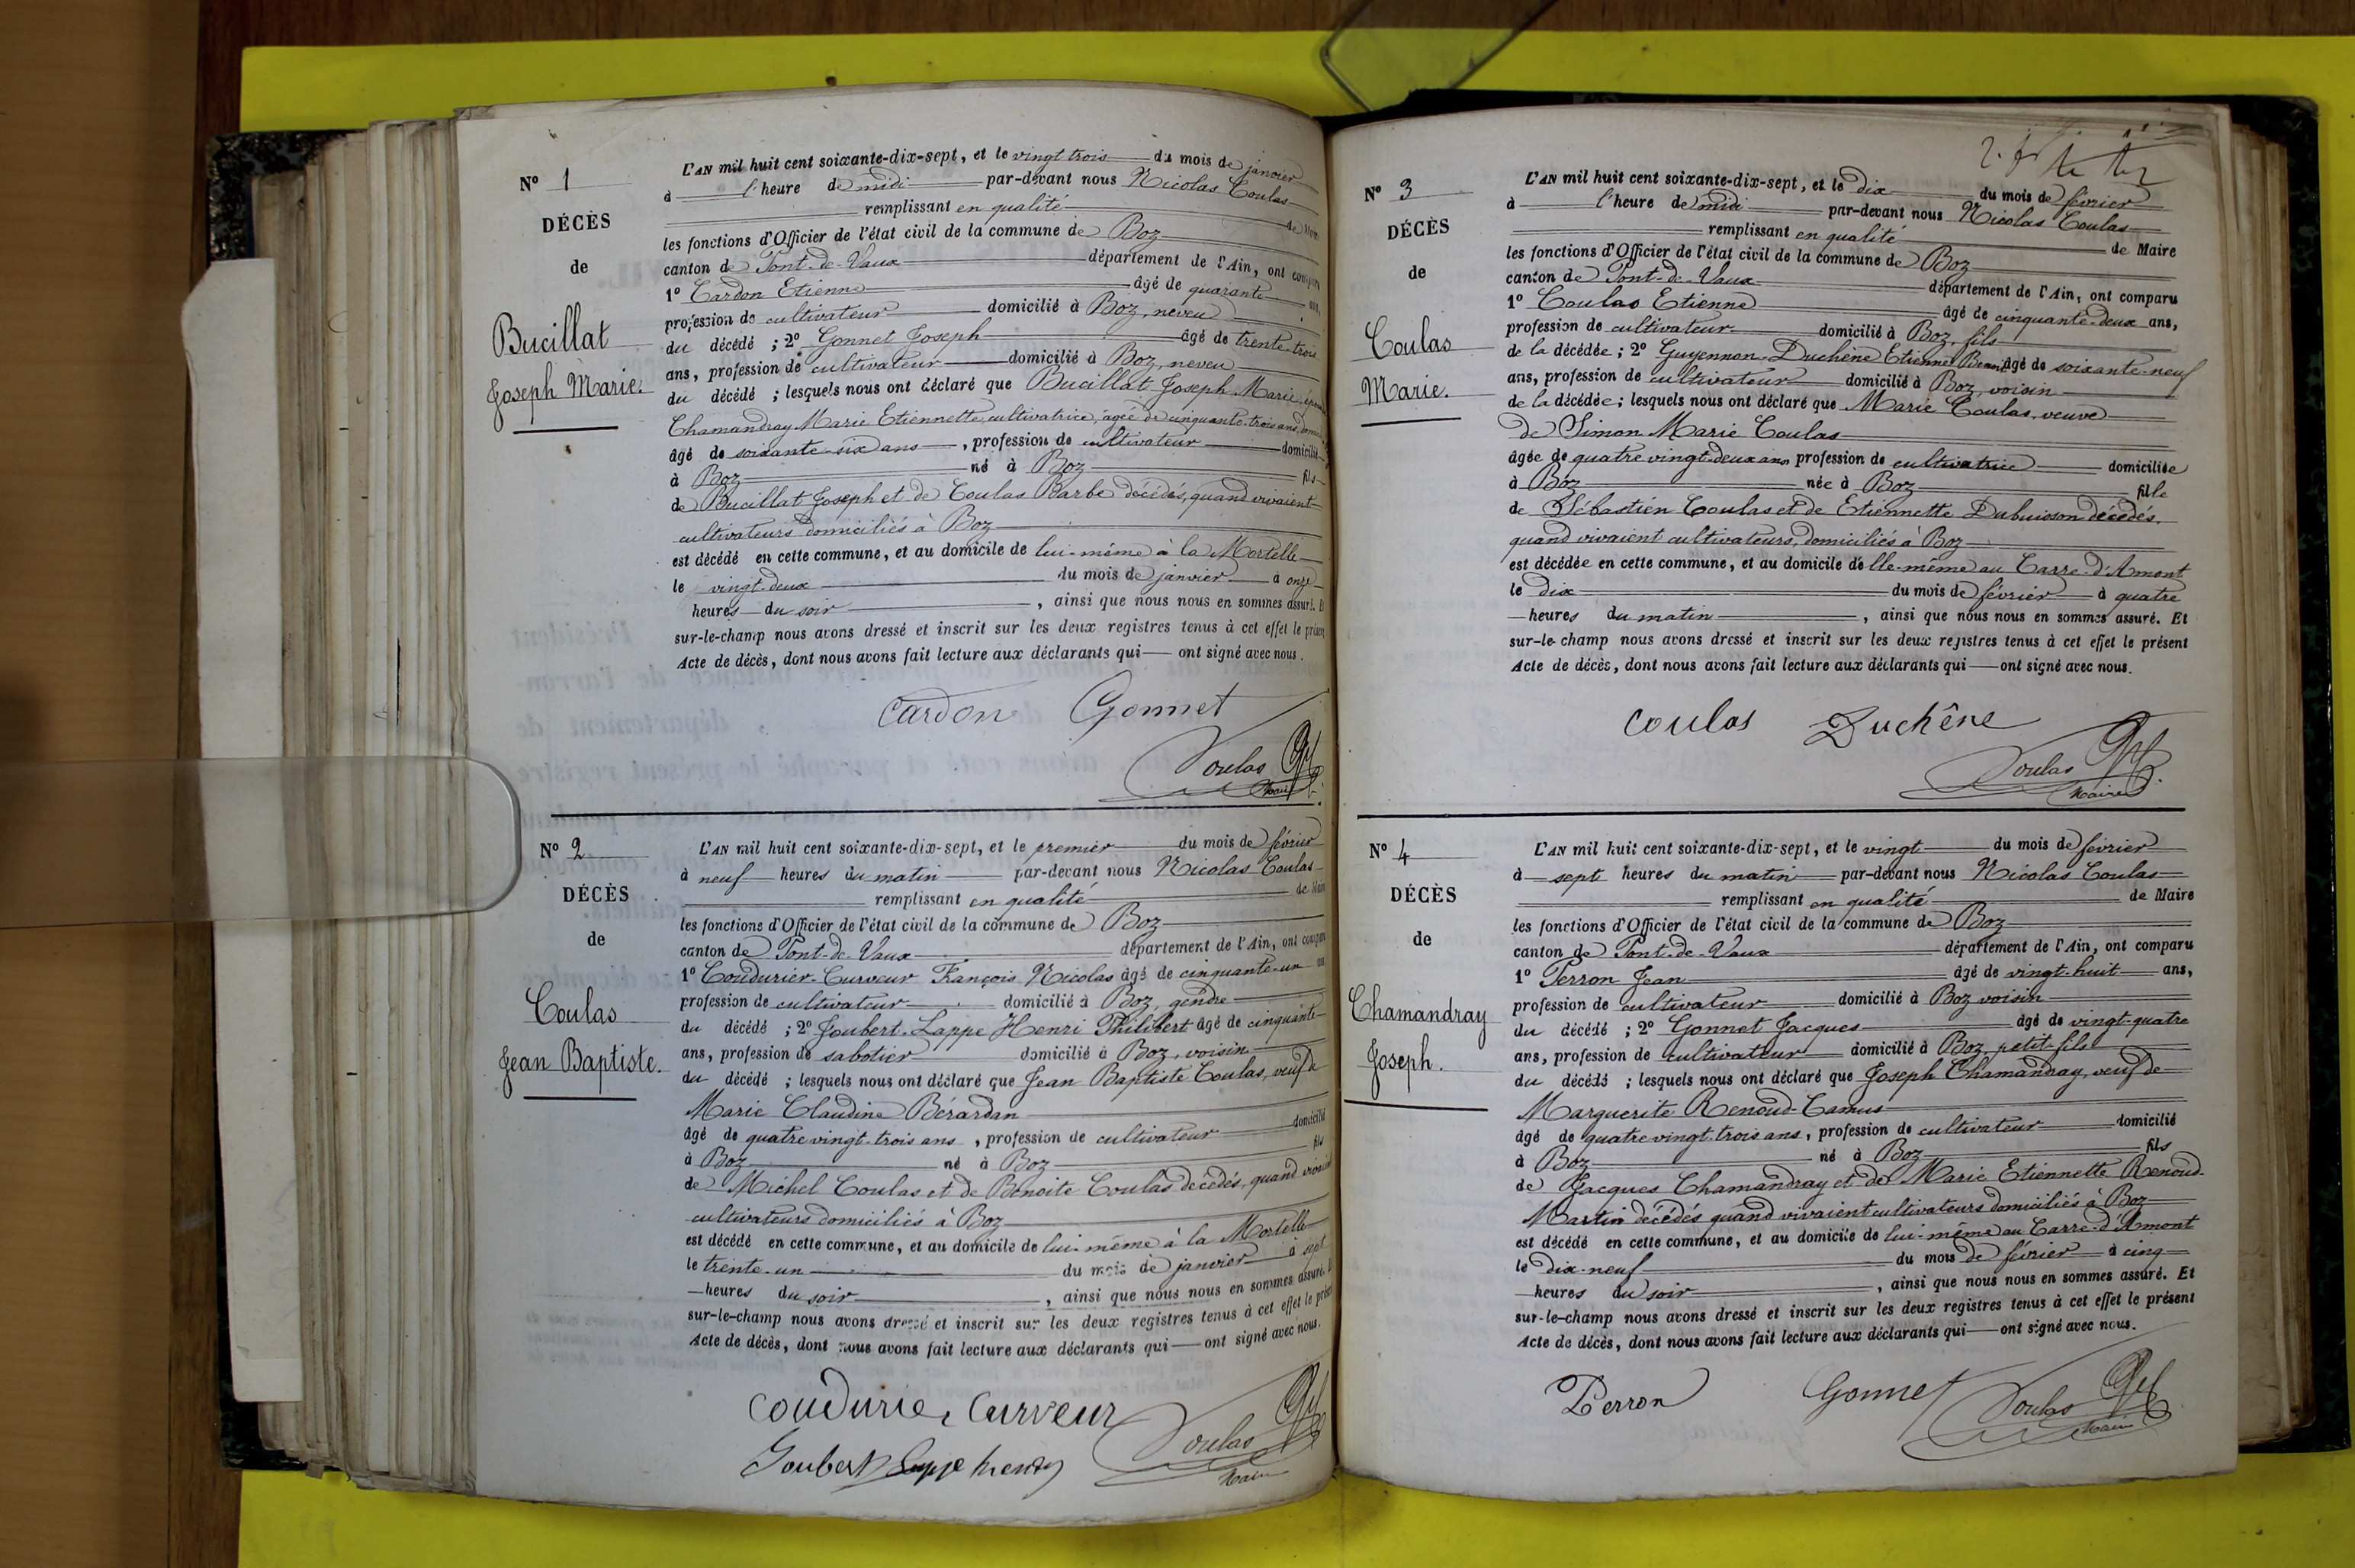 N° 1
DÉCÈS
de
Bucillat
Joseph Marie.
L'AN mil huit cent soixante-dix-sept, et le vingt trois du mois de janvier
à l'heure de midi par-devant nous Nicolas Coulas
remplissant en qualité de Maire
les fonctions d'Officier de l'état civil de la commune de Boz
canton de Pont-de-Vaux département de l'Ain, ont comparu
1° Cardon Etienne âgé de quarante ans,
profession de cultivateur domicilié à Boz, neveu
du décédé ; 2° Gonnet Joseph âgé de trente-trois
ans, profession de cultivateur domicilié à Boz, neveu
du décédé ; lesquels nous ont déclaré que Bucillat Joseph Marie, époux
Chamandray Marie Etiennette, cultivatrice, âgée de cinquante-trois ans,
âgé de soixante-six ans, profession de cultivateur domicilié
à Boz né à Boz fils
de Bucillat Joseph et de Coulas Barbe décédés, quand vivaient
cultivateurs domiciliés à Boz
est décédé en cette commune, et au domicile de lui-même à la Mortelle
le vingt-deux du mois de janvier à onze
heures du soir, ainsi que nous nous en sommes assuré. Et
sur-le-champ nous avons dressé et inscrit sur les deux registres tenus à cet effet le présent
Acte de décès, dont nous avons fait lecture aux déclarants qui ont signé avec nous.
Cardon Gonnet
Coulas
Maire
N° 2
DÉCÈS
de
Coulas
Jean Baptiste.
L'AN mil huit cent soixante-dix-sept, et le premier du mois de février
à neuf heures du matin par-devant nous Nicolas Coulas
remplissant en qualité de Maire
les fonctions d'Officier de l'état civil de la commune de Boz
canton de Pont-de-Vaux département de l'Ain, ont comparu
1° Coudurier-Curveur François Nicolas âgé de cinquante-un ans
profession de cultivateur domicilié à Boz, gendre
du décédé ; 2° Joubert-Lappe Henri Philibert âgé de cinquante
ans, profession de sabotier domicilié à Boz, voisin
du décédé ; lesquels nous ont déclaré que Jean Baptiste Coulas, veuf de
Marie Claudine Bérardan
âgé de quatre vingt-trois ans, profession de cultivateur domicilié
à Boz né à Boz fils
de Michel Coulas et de Benoite Coulas décédés, quand vivaient
cultivateurs domiciliés à Boz
est décédé en cette commune, et au domicile de lui-même à la Mortelle
le trente-un du mois de janvier à sept
heures du soir, ainsi que nous nous en sommes assuré. Et
sur-le-champ nous avons dressé et inscrit sur les deux registres tenus à cet effet le présent
Acte de décès, dont nous avons fait lecture aux déclarants qui ont signé avec nous.
Coudurier Curveur
Joubert Lappe henry
Coulas
Maire
N° 3
DÉCÈS
de
Coulas
Marie.
L'AN mil huit cent soixante-dix-sept, et le dix du mois de février
à l'heure de midi par-devant nous Nicolas Coulas
remplissant en qualité de Maire
les fonctions d'Officier de l'état civil de la commune de Boz
canton de Pont-de-Vaux département de l'Ain, ont comparu
1° Coulas Etienne âgé de cinquante-deux ans,
profession de cultivateur domicilié à Boz, fils
de la décédée ; 2° Guyennon-Duchène Etienne âgé de soixante-neuf
ans, profession de cultivateur domicilié à Boz, voisin
de la décédée ; lesquels nous ont déclaré que Marie Coulas, veuve
de Simon Marie Coulas
âgée de quatre vingt-deux ans profession de cultivatrice domiciliée
à Boz née à Boz fille
de Sébastien Coulas et de Etiennette Dubuisson décédés,
quand vivaient cultivateurs, domiciliés à Boz
est décédée en cette commune, et au domicile d'elle-même au Carre-d'Amont
le dix du mois de février à quatre
heures du matin, ainsi que nous nous en sommes assuré. Et
sur-le-champ nous avons dressé et inscrit sur les deux registres tenus à cet effet le présent
Acte de décès, dont nous avons fait lecture aux déclarants qui ont signé avec nous.
Coulas Duchêne
Coulas
Maire
N° 4
DÉCÈS
de
Chamandray
Joseph.
L'AN mil huit cent soixante-dix-sept, et le vingt du mois de février
à sept heures du matin par-devant nous Nicolas Coulas
remplissant en qualité de Maire
les fonctions d'Officier de l'état civil de la commune de Boz
canton de Pont-de-Vaux département de l'Ain, ont comparu
1° Perron Jean âgé de vingt-huit ans,
profession de cultivateur domicilié à Boz voisin
du décédé ; 2° Gonnet Jacques âgé de vingt-quatre
ans, profession de cultivateur domicilié à Boz, petit-fils
du décédé ; lesquels nous ont déclaré que Joseph Chamandray, veuf de
Marguerite Renoud-Camus
âgé de quatre vingt-trois ans, profession de cultivateur domicilié
à Boz né à Boz fils
de Jacques Chamandray et de Marie Etiennette Renoud-
Martin décédés quand vivaient cultivateurs domiciliés à Boz
est décédé en cette commune, et au domicile de lui-même au Carre-d'Amont
le dix-neuf du mois de février à cinq
heures du soir, ainsi que nous nous en sommes assuré. Et
sur-le-champ nous avons dressé et inscrit sur les deux registres tenus à cet effet le présent
Acte de décès, dont nous avons fait lecture aux déclarants qui ont signé avec nous.
Perron Gonnet
Coulas
Maire